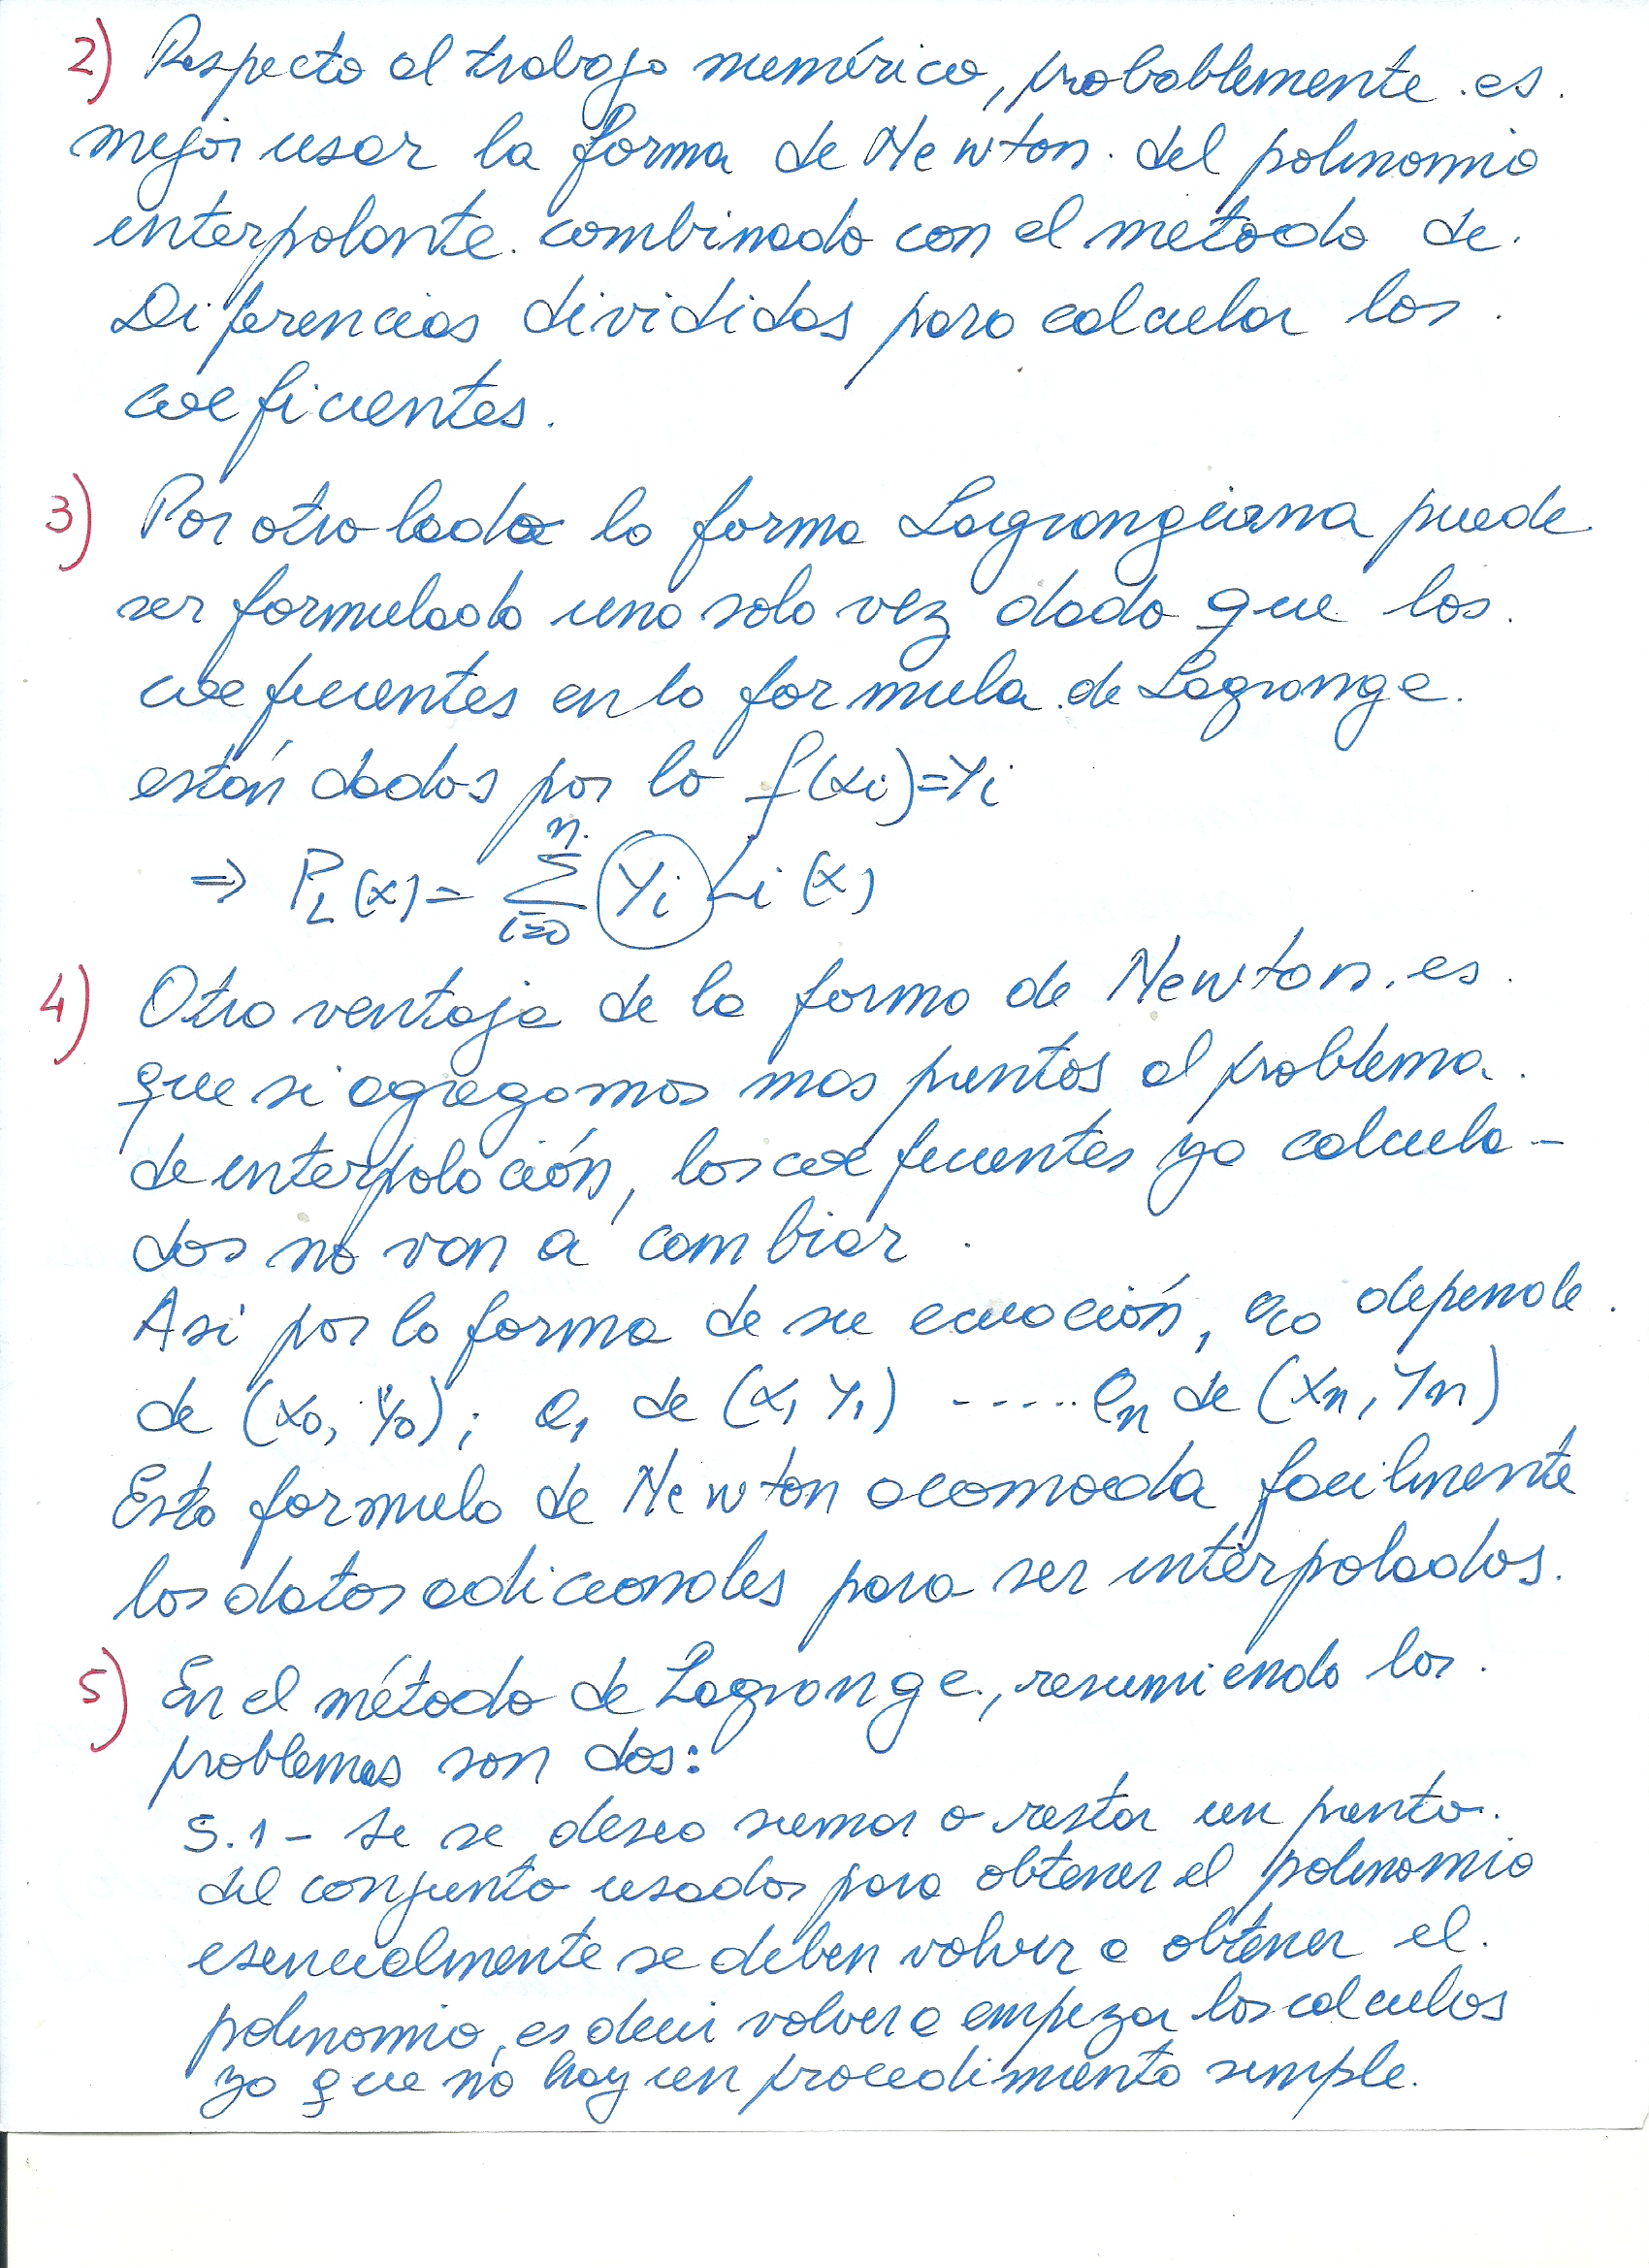 2) Respecto al trabajo numérico, probablemente es
mejor usar la forma de Newton del polinomio
interpolante combinado con el metodo de
Diferencias divididas para calcular los
coeficientes.
3) Por otro lado la forma Lagrangiana puede
ser formulada una sola vez dado que los
coeficientes en la formula de Lagrange
están dados por la f(xi)=yi
⇒ P_L(x) = ∑_{i=0}^{n} yi Li(x)
4) Otra ventaja de la forma de Newton, es
que si agregamos mas puntos al problema
de interpolación, los coeficientes ya calcula-
dos no van a cambiar.
Asi por la forma de su ecuación, a0 depende
de (x0, y0); a1 de (x1 y1) ..... an de (xn, yn)
Esta formula de Newton acomoda facilmente
los datos adicionales para ser interpolados.
5) En el método de Lagrange, resumiendo los
problemas son dos:
5.1 - Si se desea sumar o restar un punto
del conjunto usados para obtener el polinomio
esencialmente se deben volver a obtener el
polinomio, es decir volver a empezar los calculos
ya que no hay un procedimiento simple.